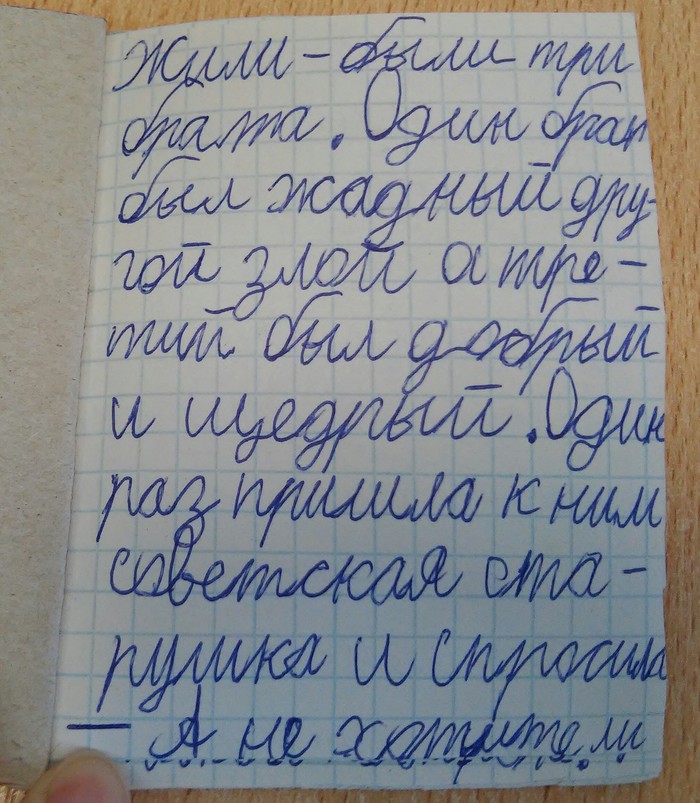 Жили-были три
брата. Один брат
был жадный дру-
гой злой а тре-
тий был добрый
и щедрый. Один
раз пришла к ним
советская ста-
рушка и спросила
— А не хотите ли